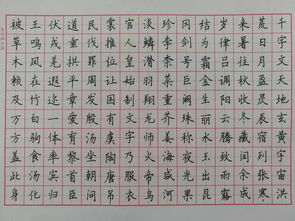 千字文天地玄黄宇宙洪
荒日月盈昃辰宿列张寒
来暑往秋收冬藏闰余成
岁律吕调阳云腾致雨露
结为霜金生丽水玉出昆
冈剑号巨阙珠称夜光果
珍李柰菜重芥姜海咸河
淡鳞潜羽翔龙师火帝鸟
官人皇始制文字乃服衣
裳推位让国有虞陶唐吊
民伐罪周发殷汤坐朝问
道垂拱平章爱育黎首臣
伏戎羌遐迩一体率宾归
王鸣凤在竹白驹食场化
被草木赖及万方盖此身